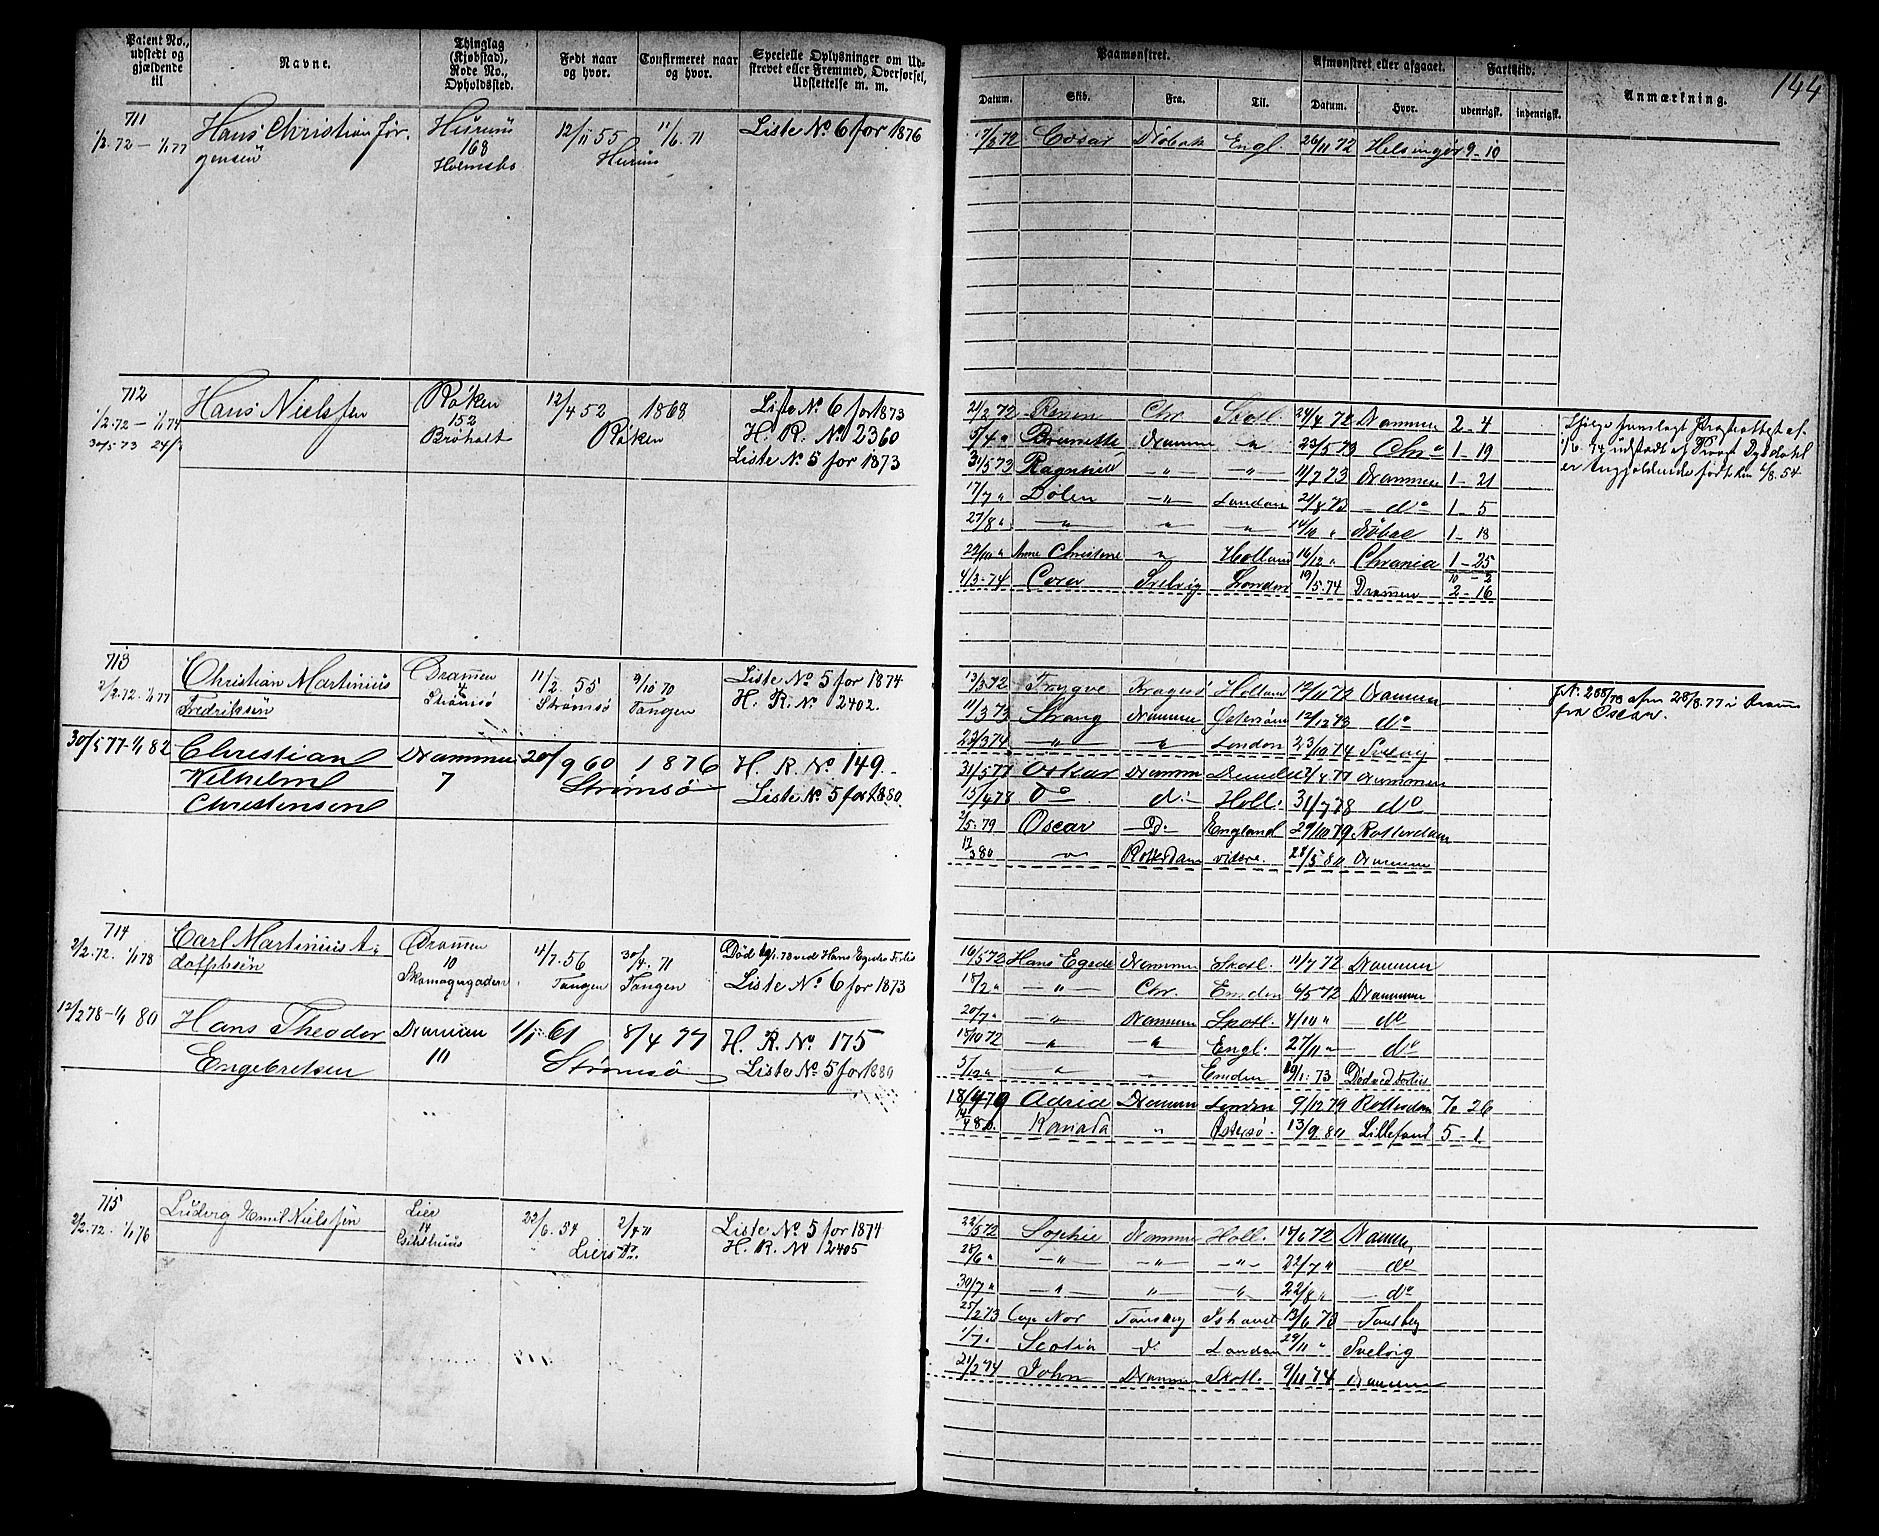 Patent No., udstedt og gjældende til
Navne.
Thinglag (Kjøbstad), Rode No., Opholdssted.
Født naar og hvor.
Confirmeret naar og hvor.
Specielle Oplysninger om Udskrevet eller Fremmed, Overførsel, Udslettelse m. m.
Paamønstret.
Datum.
Skib.
Fra.
Til.
Afmønstret eller afgaaet.
Datum.
Hvor.
Farttid.
udenrigsk.
indenrigsk.
Anmærkning.
144
711
1/2.72 — 1/1 77
Hans Christian Jør-
gensen
Hurum
168
Holmsbo
12/11 55
Hurum
1/6. 71
Liste No 6 for 1876
Cæsar Drøbak Engl. 26/11 72 Helsingør 9 - 10
712
1/2.72 — 1/1 74
Hans Nielssen
Røken
152
12/4 52
Røken
1868
Liste No 6 for 1873
H. R. No 2360
Liste No 5 for 1873
21/2 72 Chr. Skotl. 24/4 72 Drammen 2 - 4
5/4 " Brunette Drammen " 23/5 73 Chr a 1 - 19
31/5 73 Ragnhild - " - - " - 11/7 73 Drammen 1 - 21
17/7 " Dølen - " - London 21/8 73 do 1 - 5
27/8 " - " - " " 14/10 " Drøbac 1 - 18
22/10 " Anne Christine " Holland 16/12 " Chrania 1 - 25
10 - 2
4/3 - 74 Svelvig London 19/5 74 Dramen 2 - 16
713
2/2.72. 1/1 77
Christian Martinius
Fredriksen
Dramen
4
Strømsø
11/2 55
Strømsø
9/10 70
Tangen
Liste No 5 for 1874
H. R. No 2402.
13/3 72 Trygve Kragerø Holland 12/11 72 Drammen
11/3 73 Strang Drammen Østersøen 12/12 73 do
23/3 74 - " - " London 23/10 74 Svelvig
fra Oscar.
30/5 77 - 1/1 82
Christian
Wilhelm
Christensen
Drammen
7
20/9 60
Strømsø
1876
H. R. No 149.
Liste No 5 for 1880.
31/5 77 Oskar Dramm
15/4 78 Do do Holl. 31/7 78 do
2/5. 79 Oscar Do England 29/10 79 Rotterdam
12/3 80 " Rotterdam videre. 28/5 80 Drammen
714
2/2.72. 1/1 78
Carl Martinius A-
dolphsen
Dramen
10
Skomagergaden
11/7. 56
Tangen
30/4. 71
Tangen
Død 19/1. 73 ved Hans Egedes Forlis
Liste No 6 for 1873
16/5 72 Hans Egede Drammen Skotl. 11/7 72 Drammen
18/2 " - " - Chr. Emden 6/5 72 Drammen
20/7 " - " - Drammen Skotl. 4/10 " do
15/10 72 - " - " Engl. 27/11 " do
5/12 " " " Emden 19/1. 73 Død ved Forlis
12/2 78 - 1/1 80
Hans Theodor
Engebretsen
Dramen
10
61
Strømsø
8/4 77
H. R. No 175
Liste No 5 for 1880
18/4 79 Drammen London 9/12 79 Rotterdam 7. 26
Kanada " Østersø. 13/9 80 5 - 1
715
2/2.72. 1/1 76
Ludvig Emil Nielssen
Lier
14
22/6. 54
Lier
2/4 71
do
Liste No 5 for 1874
H. R. No 2405
22/5 72 Sophie Drammen Holl. Drammen
28/6 " - " - - " - - " - 22/7 " do
30/7 " - " - " - " - 22/8 " do
25/2 73 Cap Nor Tønsberg Ishavet 13/6 73 Tønsberg
1/7 " Scotia do London 29/11 " Svelvig
21/2 74 John Drammen Skotl. 9/11 74 Drammen